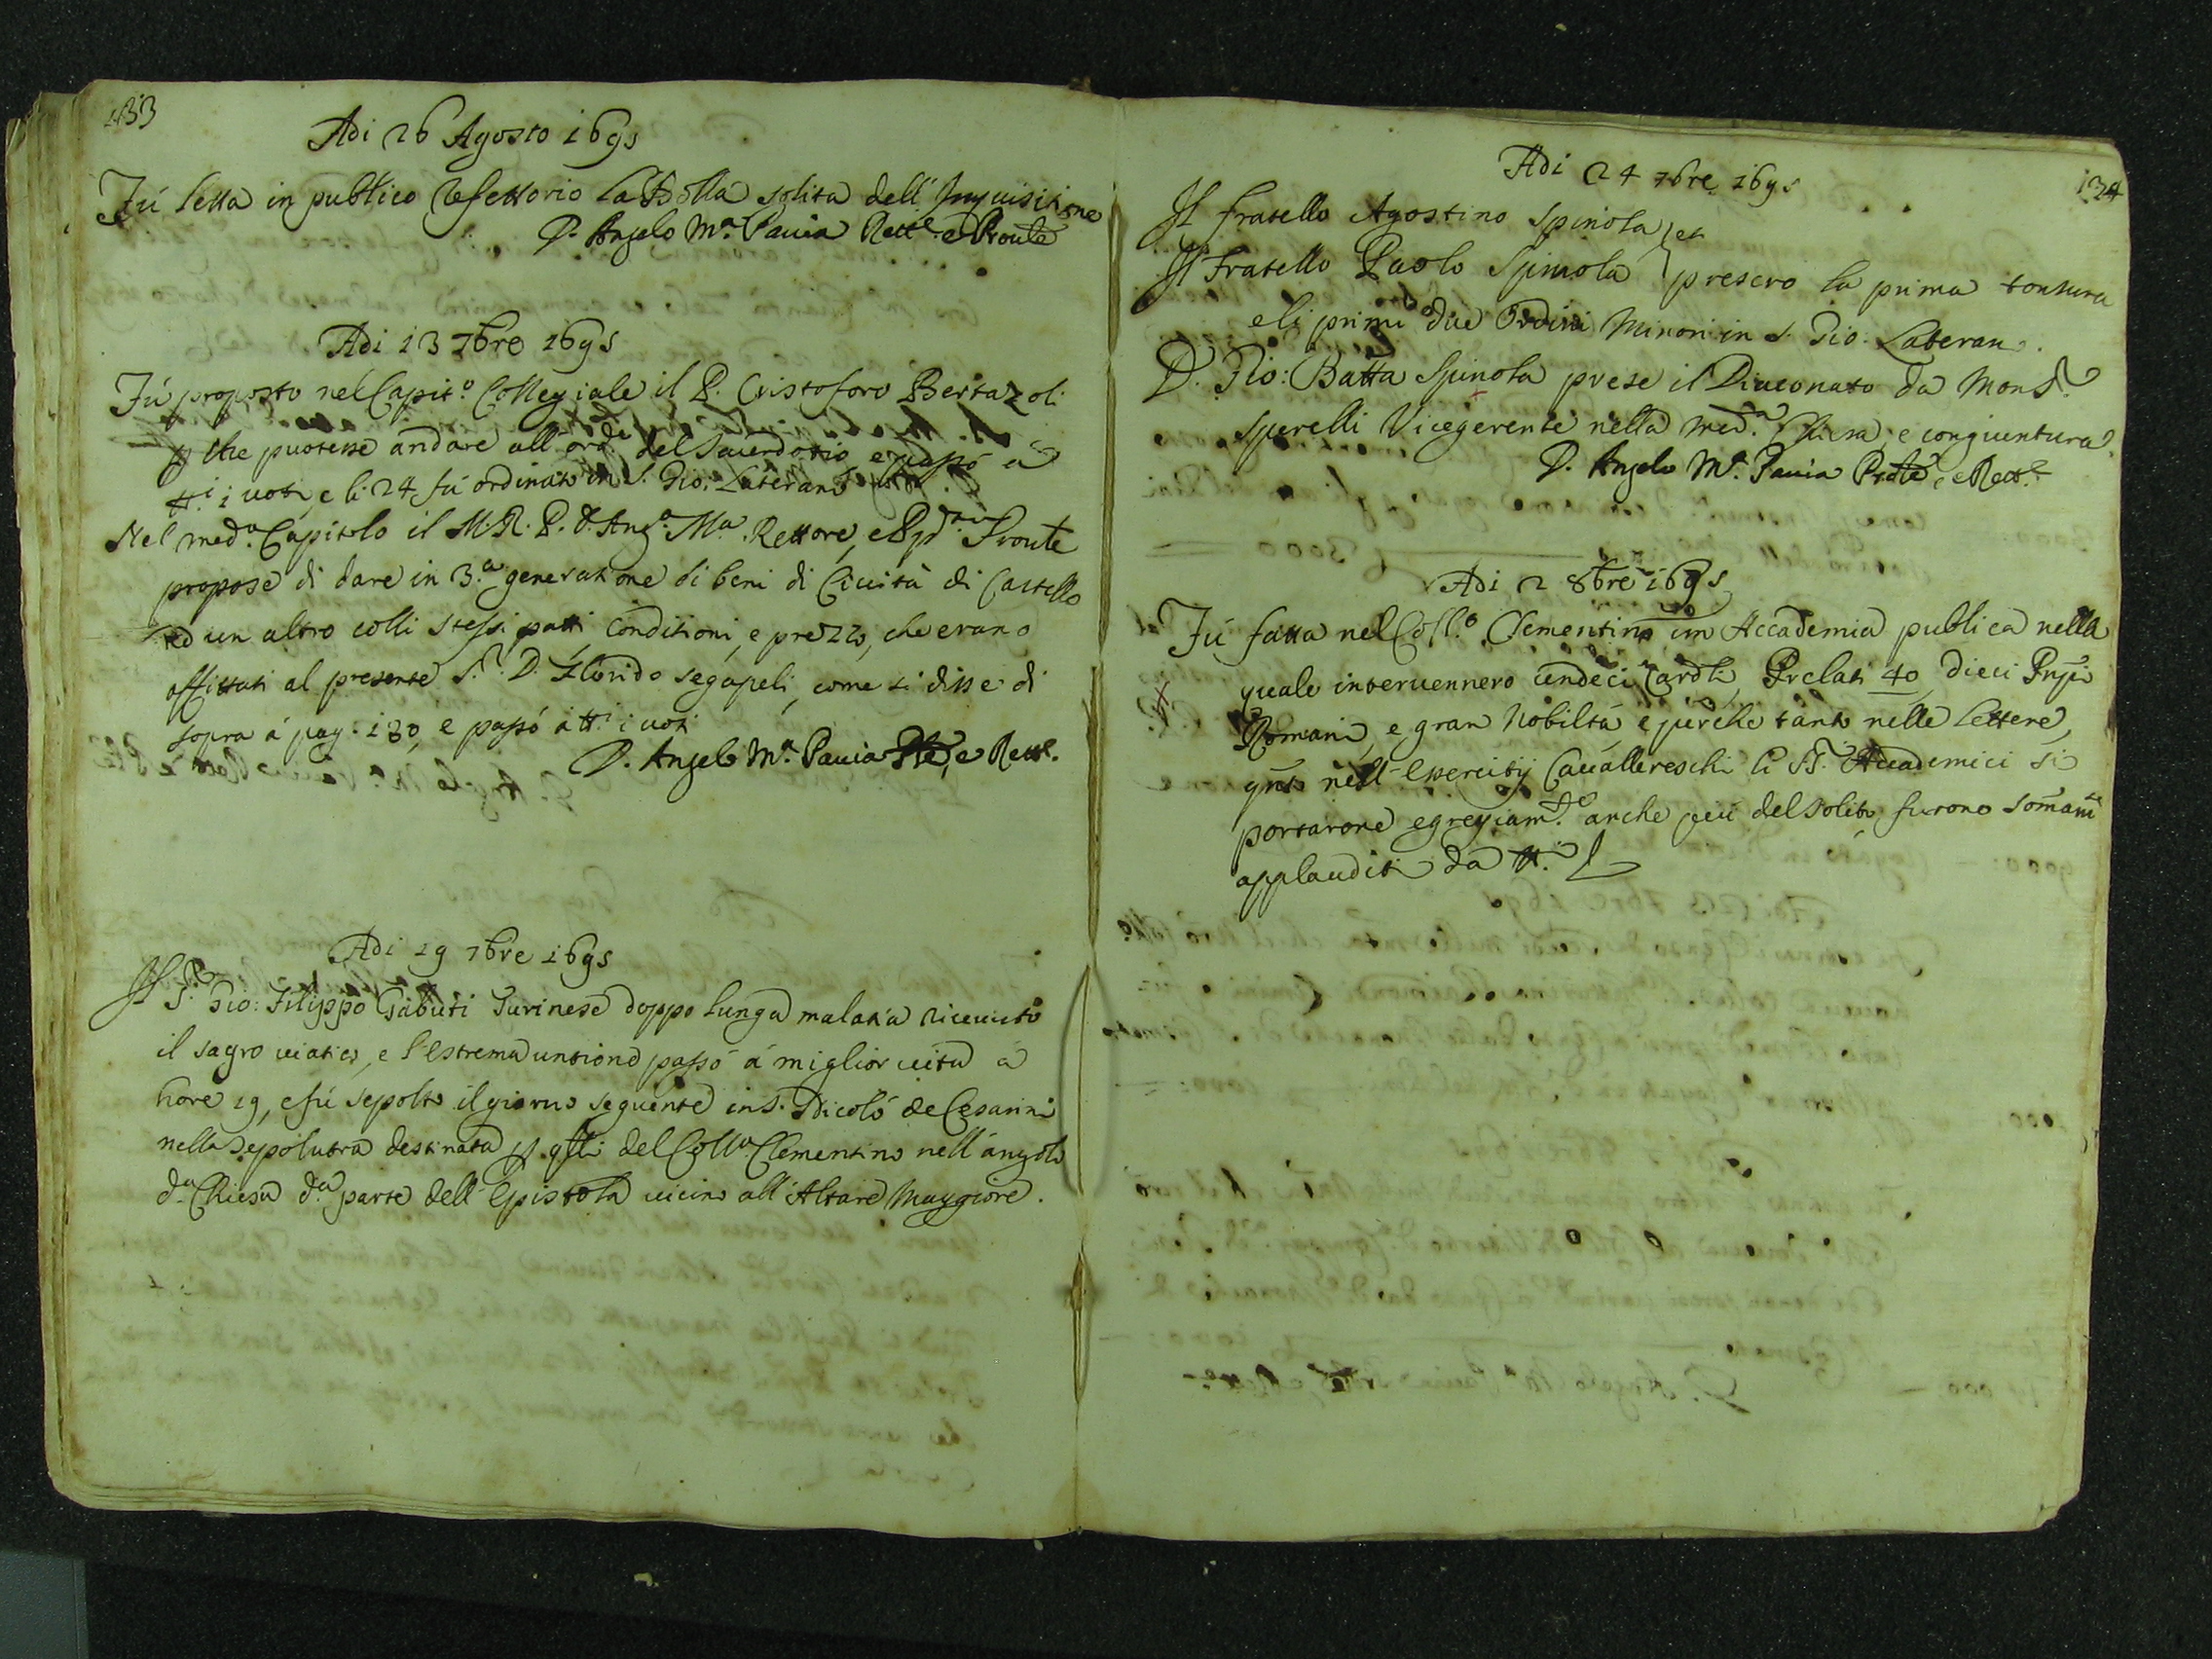 133
Adi 26 Agosto 1695
Fù letta in publico Refettorio la Bolla solita dell'Inquisitione
D. Angelo Mª. Pauia Rettre. e Proule
Adi 13 7bre 1695
Fù proposto nel Capit.º Collegiale il P. Cristoforo Bertazoli
che puotesse andare all'ord.e del Sacerdotio e passò à
tt.i i uoti, e li 24 fù ordinato in S. Gio: Laterano
Nel med.º Capitolo il M. R. P. D. Ang.º M.a Rettore, e Proule
propose di dare in 3.ª generatione di beni di Ciuità di Castello
ad un altro colli stessi patti conditioni, e prezzo, che erano
affittati al presente S.r D. Florido Segapeli, come si disse di
sopra à pag. 130, e passò à tt.i i uoti
D. Angelo Mª. Pauia Ple, e Rettre.
Adi 19 7bre 1695
Il S.r Gio: Filippo Gabuti Turinese doppo lunga malatia riceuuto
il sagro uiatico, e l'estrema untione passò à miglior uita à
hore 19, e fù sepolto il giorno seguente in S. Nicolò de Cesarini
nella sepolutra destinata p. qlli del Coll.º Clementino nell'angolo
d.a Chiesa d.a parte dell'Epistola uicino all'Altare Maggiore.
134
Adi 24 7bre 1695
Il fratello Agostino Spinola } et
Il fratello Paolo Spinola } presero la prima tonsura
e li primi due Ordini Minori in S. Gio: Laterano.
D. Gio: Batta Spinola prese il Diaconato da Mons.r
Sperelli Vicegerente nella med.a Chiesa, e congiuntura.
D. Angelo Mª. Pauia Prole, e Rett.re
Adi 2 8bre 1695
Fù fatta nel Coll.º Clementino un Accademia publica nella
quale interuennero undeci Cardli, Prelati 40, dieci Prnpi
Romani, e gran Nobiltà e perche tanto nelle lettere,
qnto nell'Esercitij Cauallereschi li SS.ri Accademici si
portarono egregiam.te anche più del solito, furono somam.te
applauditi da tt.i